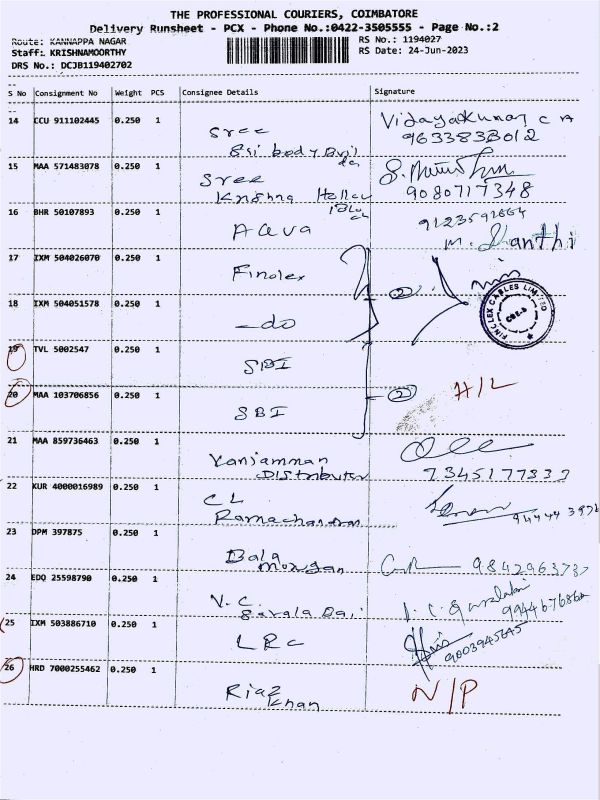 THE PROFESSIONAL COURIERS, COIMBATORE
Delivery Runsheet - PCX - Phone No.:0422-3505555 - Page No.:2
Route: KANNAPPA NAGAR
RS No.: 1194027
Staff: KRISHNAMOORTHY
RS Date: 24-Jun-2023
DRS No.: DCJB119402702
S No Consignment No Weight PCS Consignee Details Signature
14 CCU 911102445 0.250 1 Sree Vidayakumar C A
9633838012
15 MAA 571483078 0.250 1 Sree
Krishna
9080717348
16 BHR 50107893 0.250 1
M. Shanthi
17 IXM 504026070 0.250 1 Finolex
2
FINOLEX CABLES LIMITED
18 IXM 504051578 0.250 1 -do
19 TVL 5002547 0.250 1 SBI
20 MAA 103706856 0.250 1 SBI 2 H/L
21 MAA 859736463 0.250 1 Vaniamman
Distributer
22 KUR 4000016989 0.250 1 CL
Ramachandran
23 DPM 397875 0.250 1 Bala
Murugan
24 EDQ 25598790 0.250 1 V.C.
25 IXM 503886710 0.250 1 LRC
9003945645
26 HRD 7000255462 0.250 1 Riaz N/P
Khan